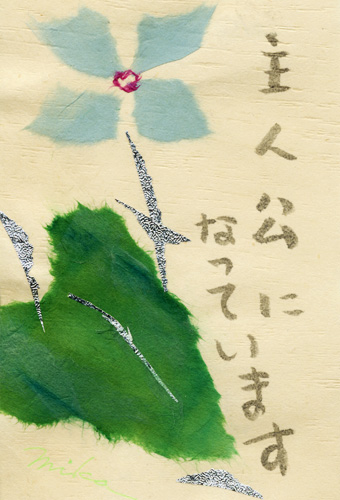 主人公に
なっています
mika